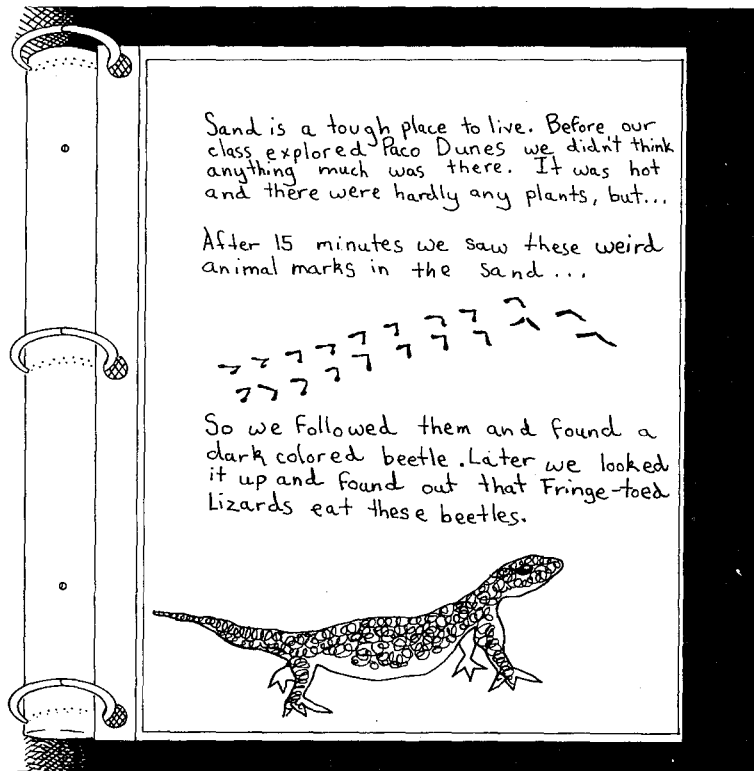 Sand is a tough place to live. Before our
class explored Paco Dunes we didn't think
anything much was there. It was hot
and there were hardly any plants, but...
After 15 minutes we saw these weird
animal marks in the sand...
So we followed them and found a
dark colored beetle. Later we looked
it up and found out that Fringe-toed
Lizards eat these beetles.